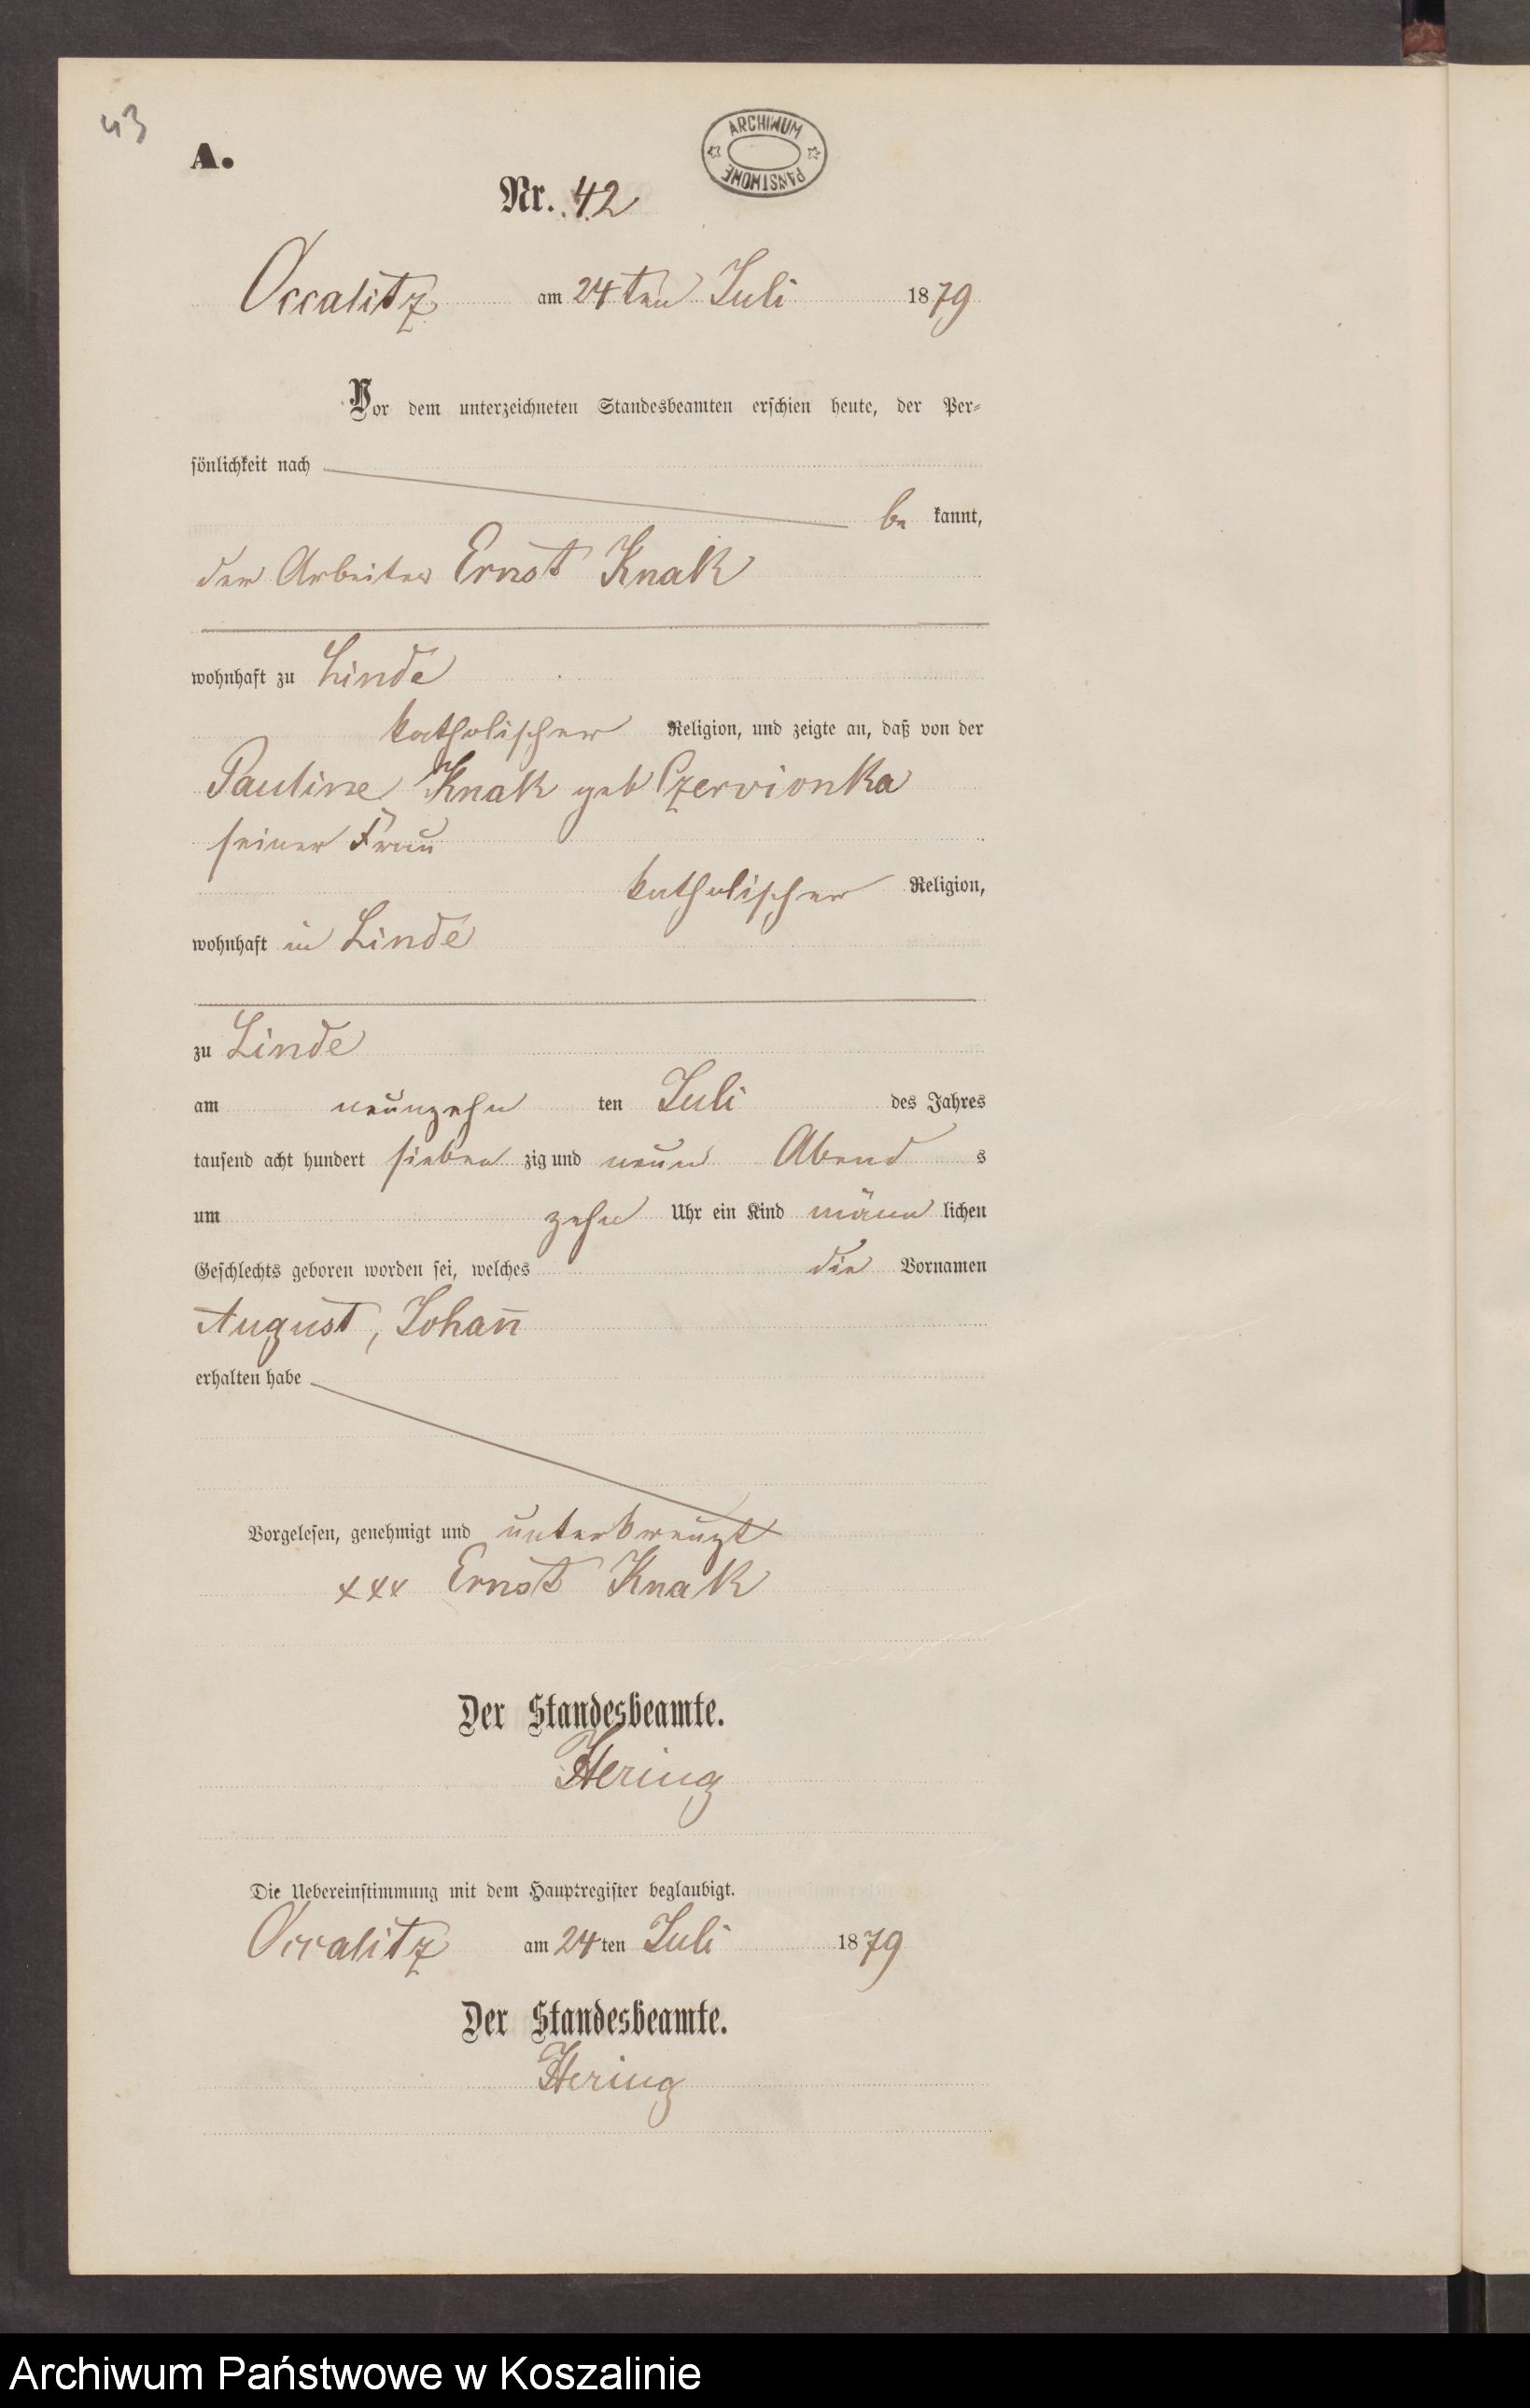 43
A.
ARCHIWUM
PAŃSTWOWE
Nr. 42
Occalitz am 24ten Juli 1879
Vor dem unterzeichneten Standesbeamten erschien heute, der Per-
sönlichkeit nach
be kannt,
der Arbeiter Ernst Knak
wohnhaft zu Linde
katholischer Religion, und zeigte an, daß von der
Pauline Knak geb Czervionka
seiner Frau
katholischer Religion,
wohnhaft in Linde
zu Linde
am neunzehn ten Juli des Jahres
tausend acht hundert sieben zig und neun Abend s
um zehn Uhr ein Kind männ lichen
Geschlechts geboren worden sei, welches die Vornamen
August, Johan̄
erhalten habe
Vorgelesen, genehmigt und unterkreuzt
xxx Ernst Knak
Der Standesbeamte.
Hering
Die Uebereinstimmung mit dem Hauptregister beglaubigt.
Occalitz am 24 ten Juli 1879
Der Standesbeamte.
Hering
Archiwum Państwowe w Koszalinie